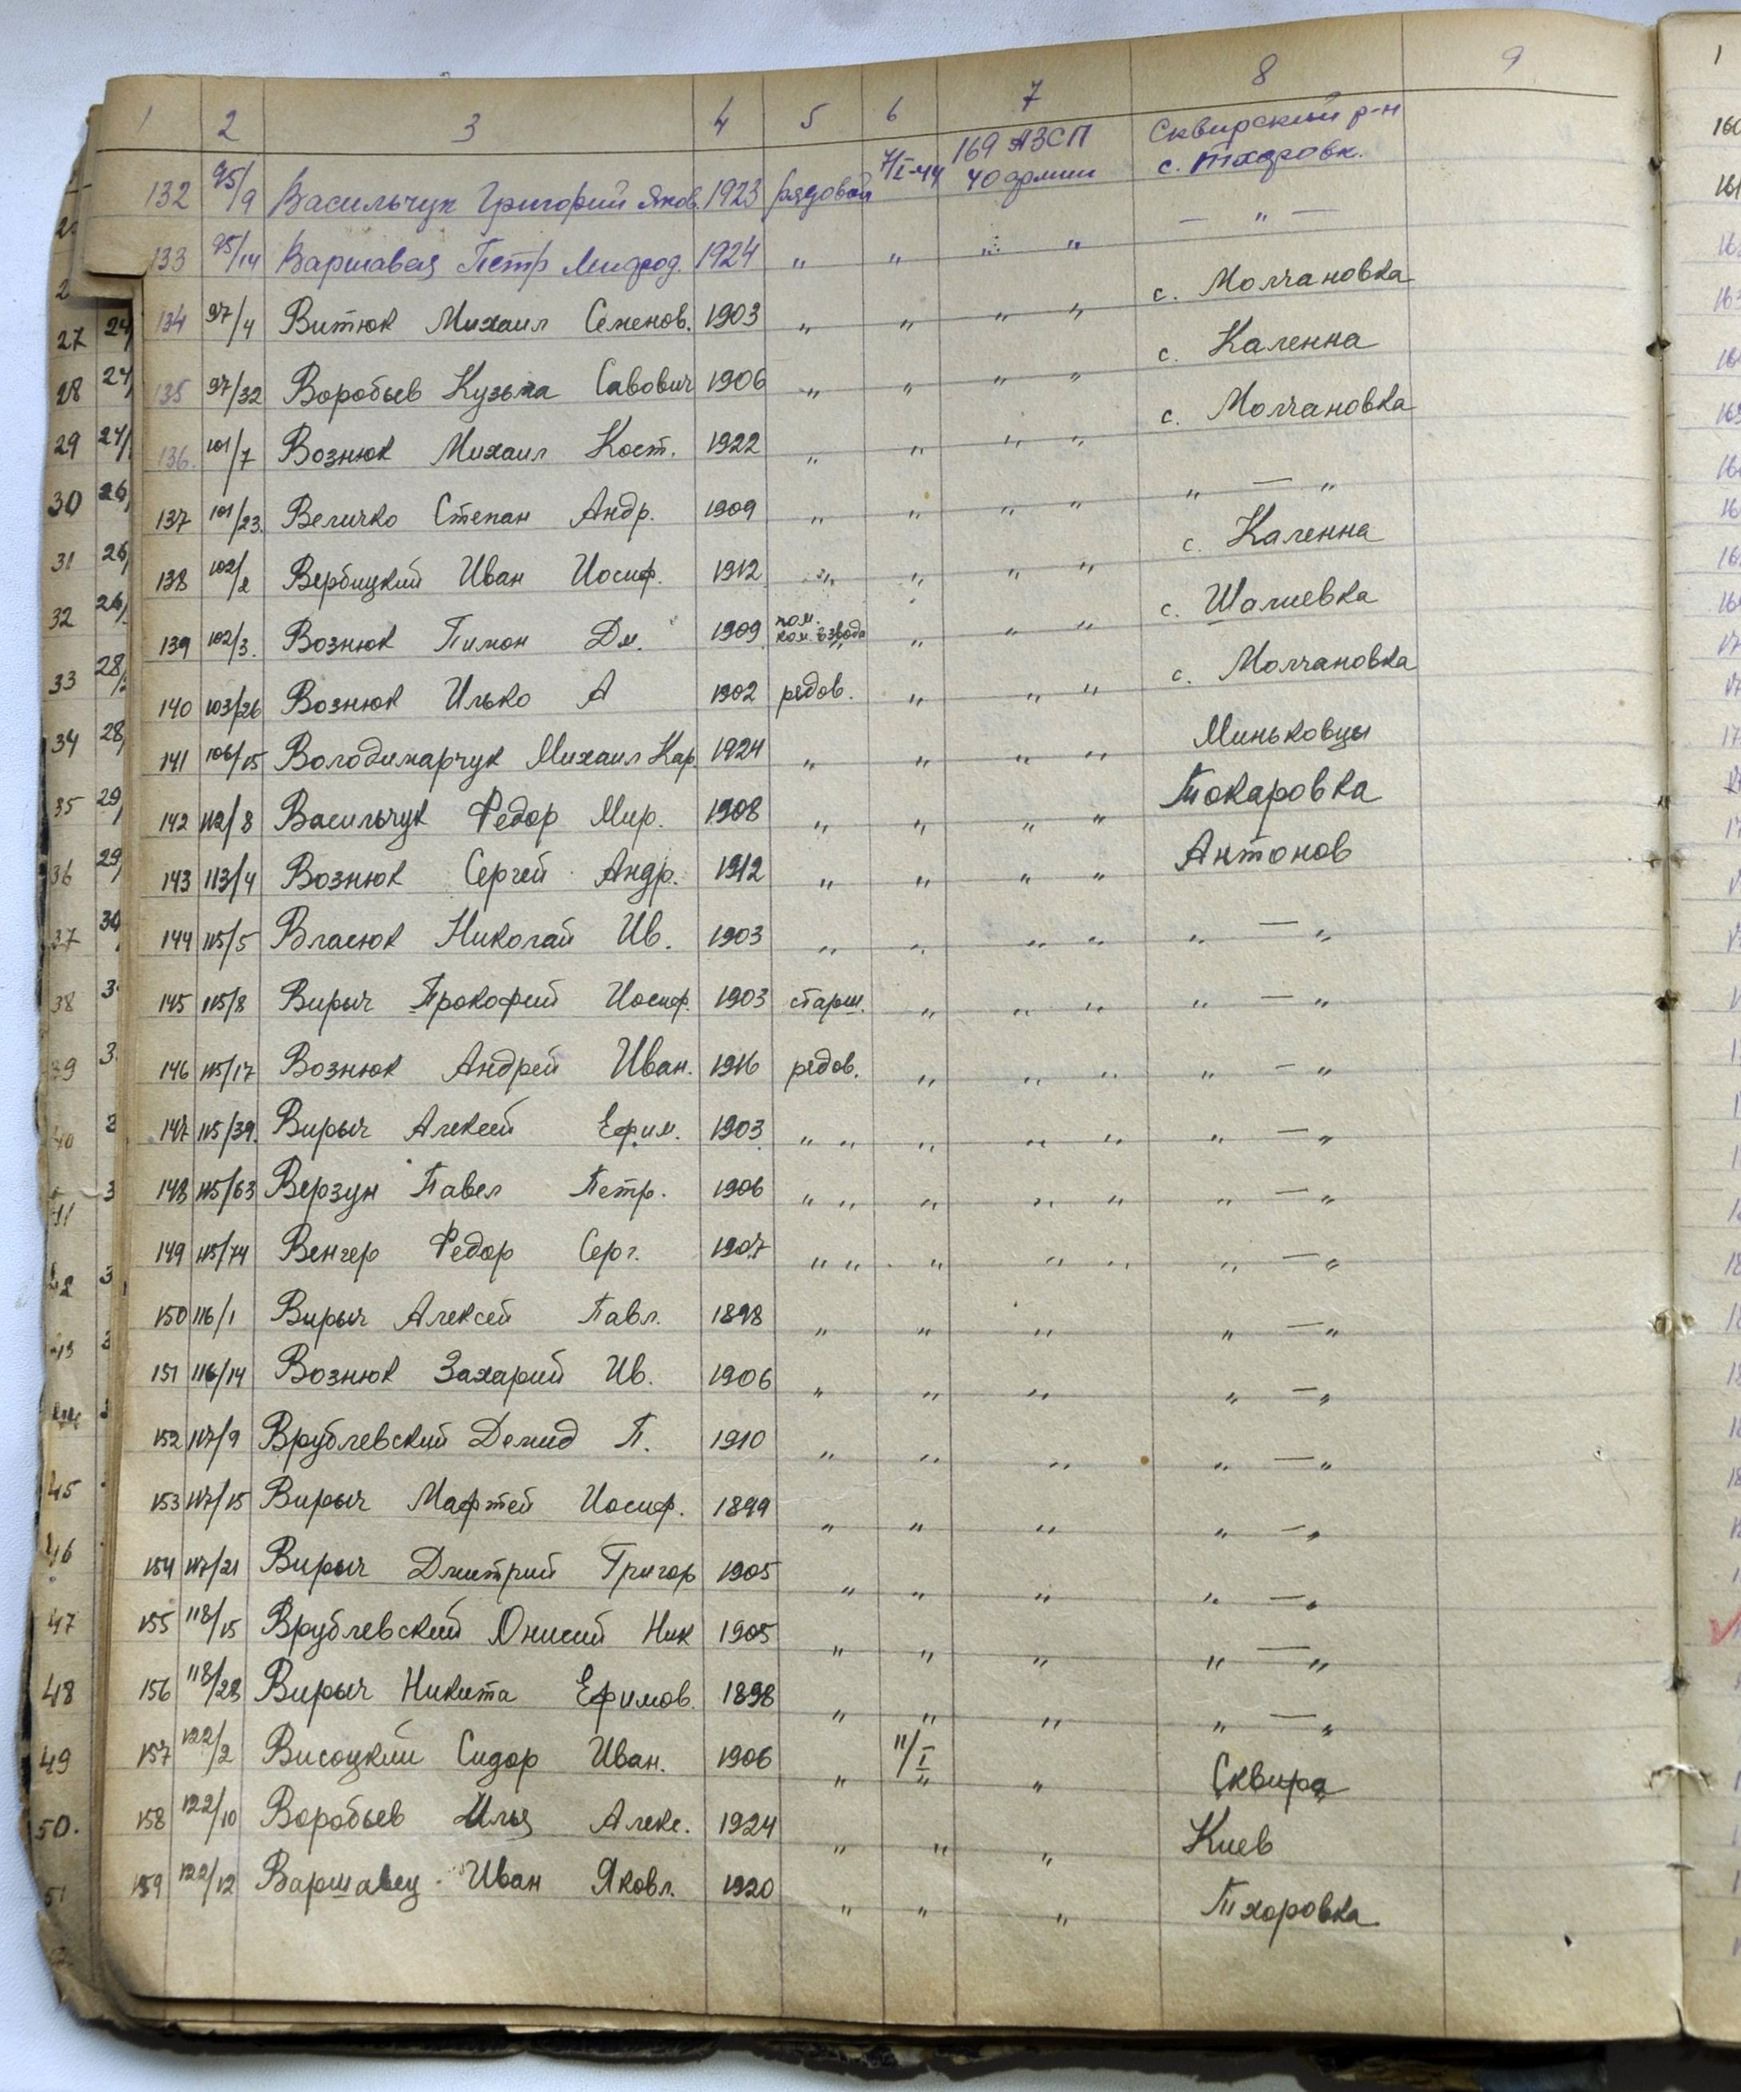 1 2 3 4 5 6 7 8 9
132 95/9 Васильчук Григорий Яков. 1923 рядовой 7/I-44 169 АЗСП 40 армии Сквирский р-н с. Тхоровк.
133 95/14 Варшавец Петр Мифод. 1924 " " " " — " —
134 97/4 Витюк Михаил Семенов. 1903 " " " " с. Молчановка
135 97/32 Воробьев Кузьма Савович 1906 " " " " с. Каленна
136. 101/7 Вознюк Михаил Кост. 1922 " " " " с. Молчановка
137 101/23. Величко Степан Андр. 1909 " " " " " — "
138 102/2 Вербицкий Иван Иосиф. 1912 " " " " с. Каленна
139 102/3. Вознюк Пимон Дм. 1909 пом. ком. взвода " " " с. Шалиевка
140 103/26 Вознюк Илько А 1902 рядов. " " " с. Молчановка
141 106/15 Володимарчук Михаил Кар. 1924 " " " " Миньковцы
142 112/8 Васильчук Федор Мир. 1908 " " " " Токаровка
143 113/4 Вознюк Сергей Андр. 1912 " " " " Антонов
144 115/5 Власюк Николай Ив. 1903 " " " " " — "
145 115/8 Вирыч Прокофий Иосиф. 1903 старш. " " " " — "
146 115/17 Вознюк Андрей Иван. 1916 рядов. " " " " — "
147 115/39. Вирыч Алексей Ефим. 1903 " " " " " " — "
148 115/63 Верзун Павел Петр. 1906 " " " " " " — "
149 115/74 Венгер Федор Серг. 1907 " " " " " " — "
150 116/1 Вирыч Алексей Павл. 1898 " " " " — "
151 116/14 Вознюк Захарий Ив. 1906 " " " " — "
152 117/9 Врублевский Демид П. 1910 " " " " — "
153 117/15 Вирыч Мафтей Иосиф. 1899 " " " " — "
154 117/21 Вирыч Дмитрий Григор 1905 " " " " — "
155 118/15 Врублевский Онисий Ник 1905 " " " " — "
156 118/28 Вирыч Никита Ефимов. 1898 " " " " — "
157 122/2 Висоцкий Сидор Иван. 1906 " 11/I " " Сквира
158 122/10 Воробьев Илья Алекс. 1924 " " " Киев
159 122/12 Варшавец Иван Яковл. 1920 " " " Тхоровка
27
28
29
30
31
32
33
34
35
36
37
38
39
40
45
46
47
48
49
50.
51